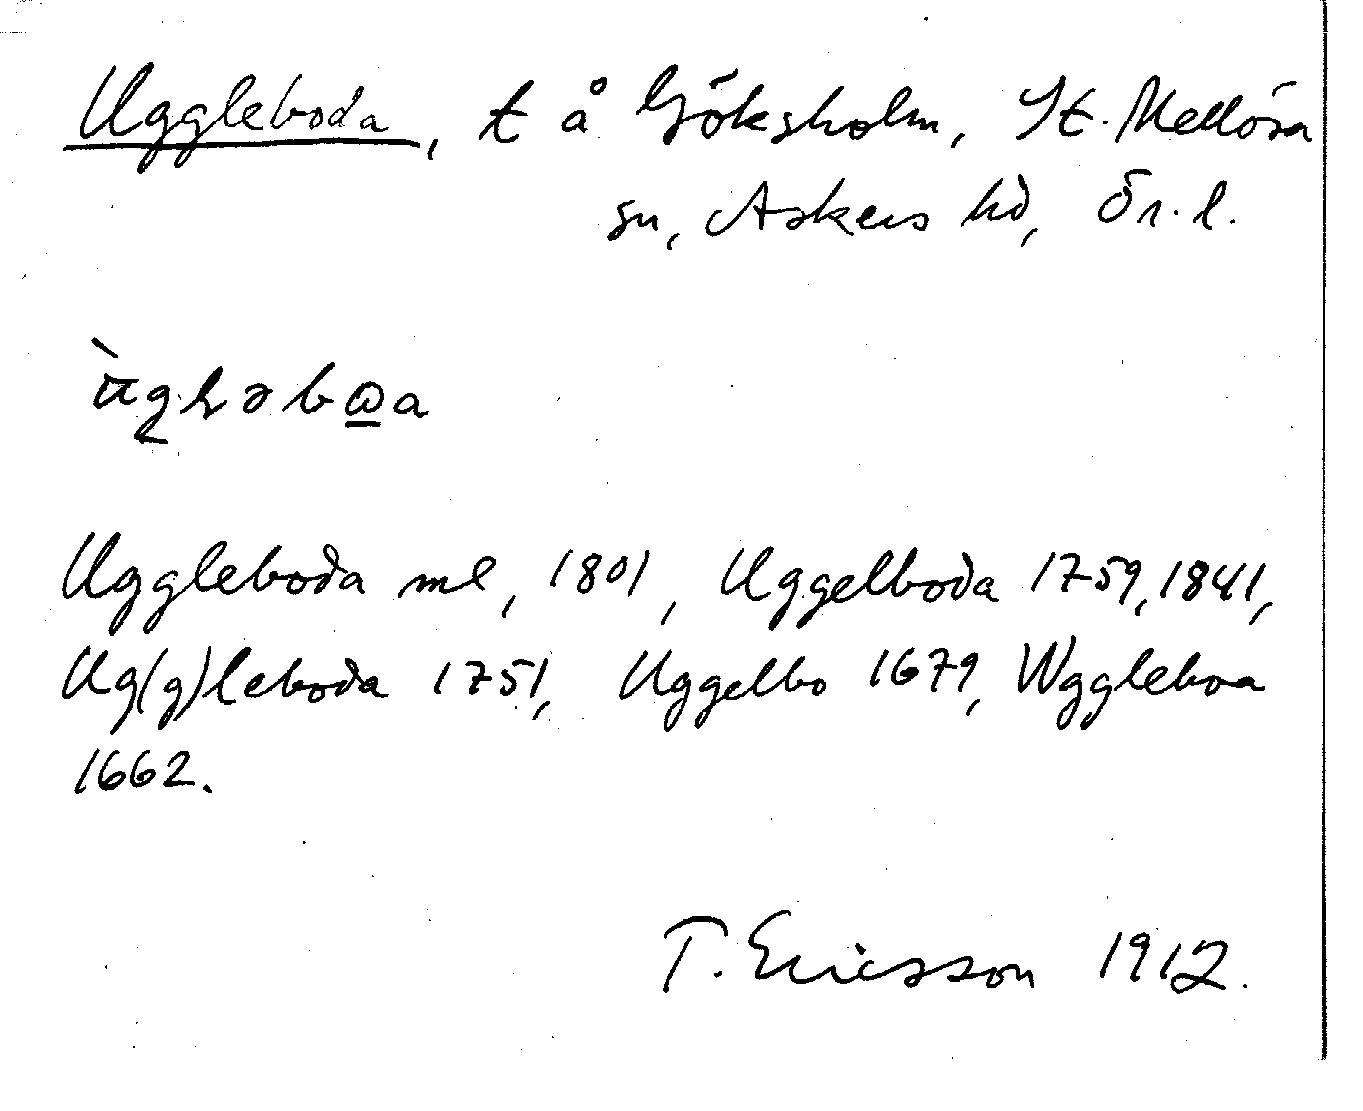 Uggleboda, t å Göksholm, St. Mellösa
sn, Askers hd, Ör. l.
Uggleboda ml, 1801, Uggelboda 1759, 1841,
Ug(g)leboda 1751, Uggelbo 1679, Wggleboa
1662.
T. Ericsson 1912.